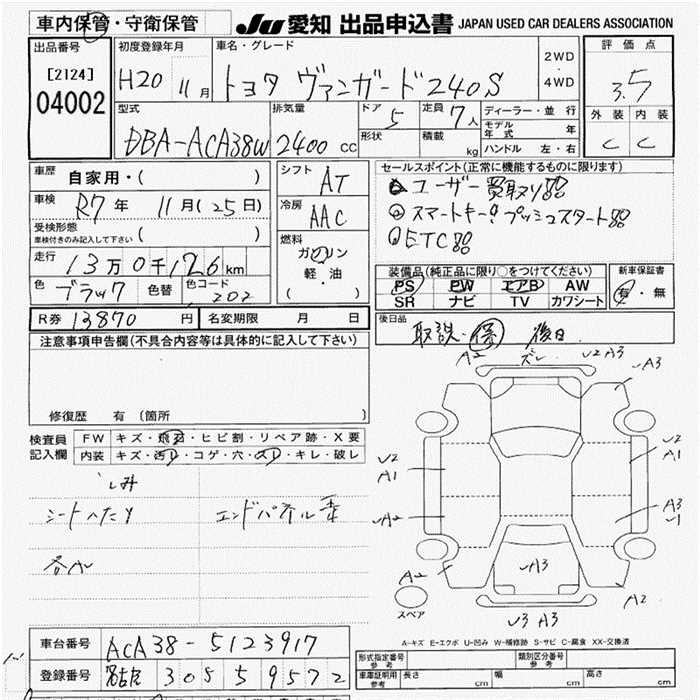 車内保管・守衛保管
JU 愛知 出品申込書 JAPAN USED CAR DEALERS ASSOCIATION
出品番号
[2124]
04002
初度登録年月
H20 11月
車名・グレード
トヨタ ヴァンガード240S
2WD
・
4WD
評価点
3.5
外装 内装
C C
型式
DBA-ACA38W
排気量
2400 CC
ドア
5
形状
定員
7人
積載
kg
ディーラー・並行
モデル年式 年
ハンドル 左・右
車歴
自家用・( )
車検
R7年 11月(25日)
受検形態
車検付きのみ記入して下さい ( )
走行
13万0千126km
色
ブラック
色替
色コード
202
シフト
AT
冷房
AAC
燃料
ガソリン
軽・油
( )
セールスポイント(正常に機能するものに限ります)
ユーザー買取り
スマートキー!プッシュスタート
ETC
装備品(純正品に限り○をつけてください)
PS PW エアB AW
SR ナビ TV カワシート
新車保証書
有・無
R券 13870円
名変期限 月 日
後日品
取説・保 後日
注意事項申告欄(不具合内容等は具体的に記入して下さい)
修復歴 有 〔箇所 〕
検査員記入欄
FW キズ・飛石・ヒビ割・リペア跡・X要
内装 キズ・汚れ・コゲ・穴・スレ・キレ・破レ
シミ
シートヘタリ
エンドパネル
各A
A2 ズレ V2 A3
A3
V2
A1
V2
A1
A2
A3
A3
A2
A2
V3 A3
スペア
A-キズ E-エクボ U-凹み W-補修跡 S-サビ C-腐食 XX-交換済
車台番号
ACA38-5123917
登録番号
名古屋 305 5 9572
形式指定番号
参考
類別区分番号
参考
車庫証明用
参考
長さ cm
幅 cm
高さ cm